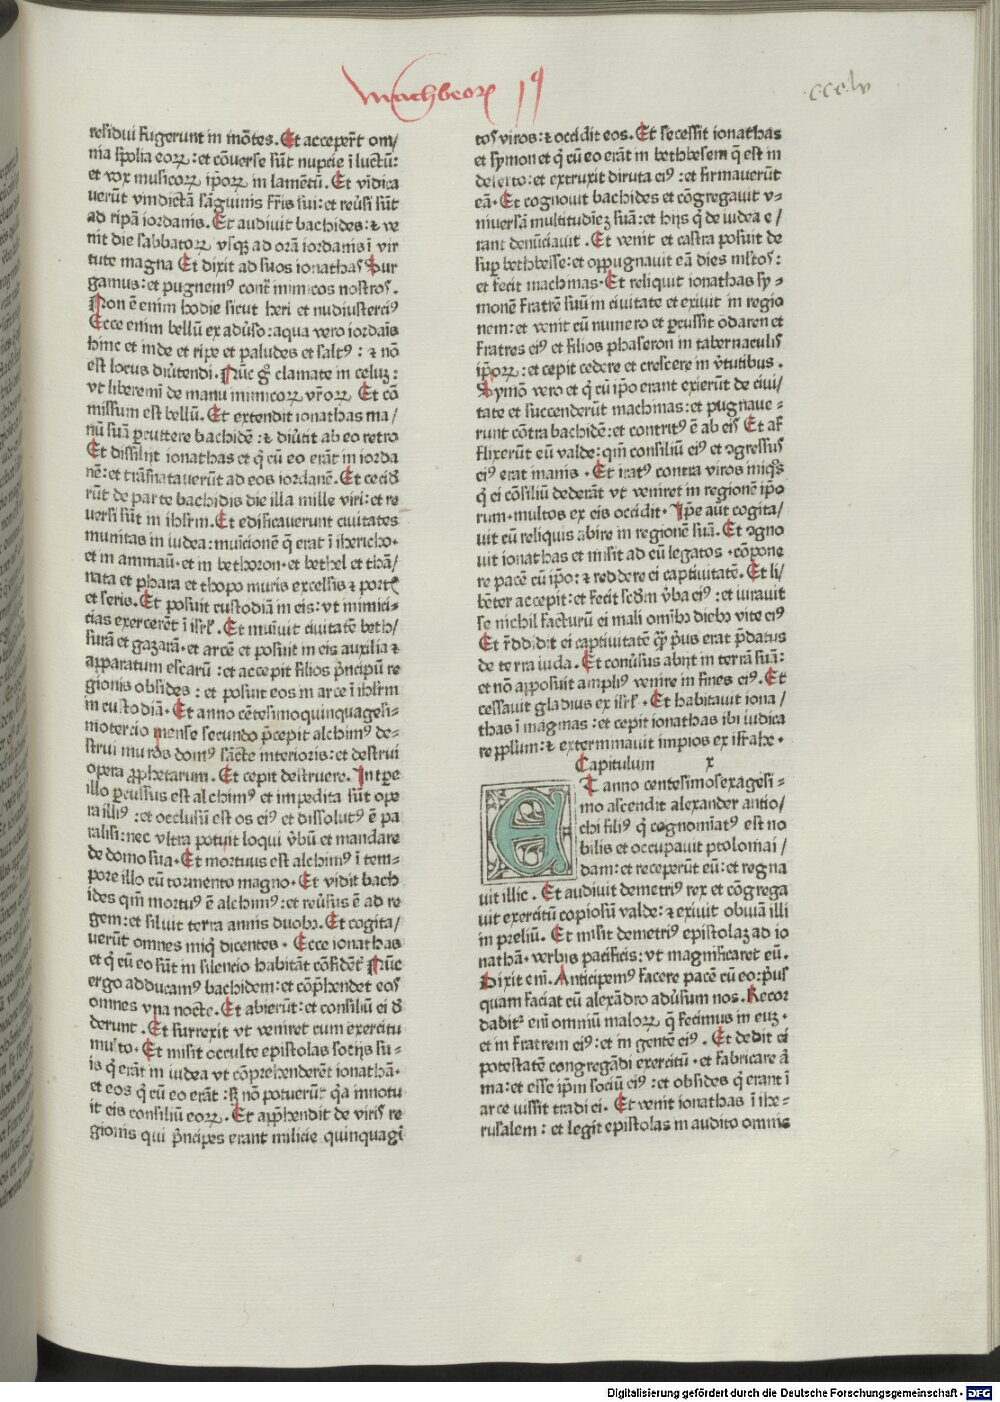 Machbeoꝝ
ccclv
residui fugerunt in mōtes. Et acceper̄t om/
nia sp̄olia eoꝝ: et cōuerse sūt nuptie ī luctū:
et vox musicoꝝ ip̄oꝝ in lamētū. Et vīdica
uerūt vindictā sāguinis fr̄is sui: et reuersi sūt
ad ripā iordanis. Et audiuit bachides: ⁊ ve
nit die sabbatoꝝ vsqꝫ ad orā iordanis ī vir
tute magna Et dixit ad suos ionathas Sur
gamus: et pugnemꝰ contͣ inimicos nostros.
Non ē enim hodie sicut heri et nudiusterciꝰ
Ecce enim bellū ex aduͤso: aqua vero iordaīs
hinc et inde et ripe et paludes et saltꝰ: ⁊ nō
est locus diuͤtendi. Nūc gͦ clamate in celuꝫ:
vt liberemī de manu inimicoꝝ vr̄oꝝ Et cō
missum est bellū. Et extendit ionathas ma/
nū suā ꝑcuttere bachidē: ⁊ diuͤtit ab eo retro
Et dissiliit ionathas et qͥ cū eo erāt in iorda
nē: et trāsnatauerūt ad eos iordanē. Et cecid͛
rūt de parte bachidis die illa mille viri: et re
uersi sūt in ihrl̄m. Et edificauerunt ciuitates
munitas in iudea: muīcionē q̄ erat ī iherícho.
et in ammaū. et in bethoron. et bethel et thā/
nata et phara et thopo muris excelsis ⁊ portꝭ
et seris. Et posuit custodiā in eis: vt inimici=
cias exercerēt ī isrl̄. Et muīuit ciuitatē beth/
surā et gazarā. et arcē et posuit in eis auxilia ⁊
apparatum escarū: et accepit filios pͥncipū re
gionis obsides: et posuit eos in arce ī ihrl̄m
in custodiā. Et anno cētesimoquinquagesi=
motercio mense secundo p̄cepit alchimꝰ de=
strui muros domꝰ sāctē interioris: et destrui
opera ꝓphetarum. Et cepit destruere. In tꝑe
illo ꝑcussus est alchimꝰ et impedita sūt ope
ra illiꝰ: et occlusū est os eiꝰ et dissolutꝰ ē pa
ralisi: nec vltra potuit loqui vͤbū et mandare
de domo sua. Et mortuus est alchimꝰ ī tem=
pore illo cū tormento magno. Et vidit bach
ides qm̄ mortuꝰ ē alchimꝰ: et reuͤsus ē ad re
gem: et siluit terra annis duobꝫ. Et cogita/
uerūt omnes iniqͥ dicentes. Ecce ionathas
et qͥ cū eo sūt in silencio habitāt cōfidēt͛ Nūc
ergo adducamꝰ bachidem: et cōp̄hendet eos
omnes vna nocte. Et abierūt: et consiliū ei d͛
derunt. Et surrexit vt veniret cum exercitu
multo. Et misit occulte epistolas socijs su=
is qͥ erāt in iudea vt cōprehenderēt ionathā.
et eos qͥ cū eo erāt: sꝫ nō potuerūt qͥa innotu
it eis consiliū eoꝝ. Et app̄hendit de viris re
gionis qui pͥncipes erant milicie quinquagī
tos viros: ⁊ occidit eos. Et secessit ionathas
et symon et qͥ cū eo erāt in bethbesem q̄ est in
deserto: et extruxit diruta eiꝰ: et firmauerūt
eā. Et cognouit bachides et cōgregauit v=
niuersā multitudīeꝫ suā: et hijs qͥ de iudea e/
rant denūciauit. Et venit et castra posuit de
suꝑ bethbesse: et oppugnauit eā dies ml̄tos:
et fecit machinas. Et reliquit ionathas sy=
monē fratrē suū in ciuitate et exiuit in regio
nem: et venit cū numero et ꝑcussit odaren et
fratres eiꝰ et filios phaseron in tabernaculis
ip̄oꝝ: et cepit cedere et crescere in vͥtutibus.
Symō vero et qͥ cū ip̄o erant exierūt de ciui/
tate et succenderūt machinas: et pugnaue=
runt cōtra bachidē: et contritꝰ ē ab eis Et af
flixerūt eū valde: qm̄ consiliū eiꝰ et ꝯgressus
eiꝰ erat inanis. Et iratꝰ contra viros iniqͦs
qͥ ei cōsiliū dederāt vt veniret in regionē ip̄o
rum. multos ex eis occidit. Ip̄e aūt cogita/
uit cū reliquis abire in regionē suā. Et ꝯgno
uit ionathas et misit ad eū legatos. cōpone
re pacē cū ip̄o: ⁊ reddere ei captiuitatē. Et li/
bēter accepit: et fecit scd̄m vͤba eiꝰ: et iurauit
se nichil facturū ei mali omībꝫ diebꝫ vite eiꝰ
Et r̄ddidit ei captiuitatē q̄ꝫ pͥus erat p̄datus
de terra iuda. Et conuͤsus abijt in terrā suā:
et nō apposuit ampliꝰ venire in fines eiꝰ. Et
cessauit gladius ex isrl̄. Et habitauit iona/
thas ī magmas: et cepit ionathas ibi iudica
re pp̄lum: ⁊ exterminauit impios ex israhe.
Capitulum x
ET anno centesimosexagesi=
mo ascendit alexander antio/
chi filiꝰ qͥ cognomīatꝰ est no
bilis et occupauit ptolomai/
dam: et receperūt eū: et regna
uit illic. Et audiuit demetriꝰ rex et cōgrega
uit exercitū copiosū valde: ⁊ exiuit obuiā illi
in preliū. Et misit demetriꝰ epistolaꝫ ad io
nathā. verbis pacificis: vt magnificaret eū.
Dixit eni. Anticipemꝰ facere pacē cū eo: pͥus
quam faciat cū alexādro aduͤsum nos. Recor
dabit᷑ eni omniū maloꝝ q̄ fecimus in euꝫ.
et in fratrem eiꝰ: et in gentē eiꝰ. Et dedit ei
potestatē congregādi exercitū. et fabricare ar
ma: et esse ip̄m sociū eiꝰ: et obsides qͥ erant ī
arce iussit tradi ei. Et venit ionathas ī ihe=
rusalem: et legit epistolas in audito omnis
Digitalisierung gefördert durch die Deutsche Forschungsgemeinschaft - DFG